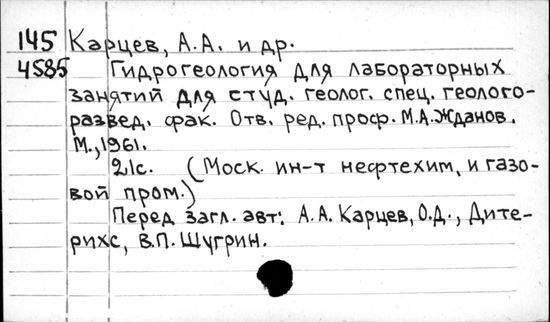 145 Карцев, А.А. и др.
4585 Гидрогеология для лабораторных
занятий для студ. геолог. спец. геолого-
развед. фак. Отв. ред. проф. М.А.Жданов.
М., 1961.
21с. (Моск. ин-т нефтехим, и газо-
вой пром.)
Перед загл. авт: А.А. Карцев, О.Д., Дите-
рихс, В.П. Шугрин.